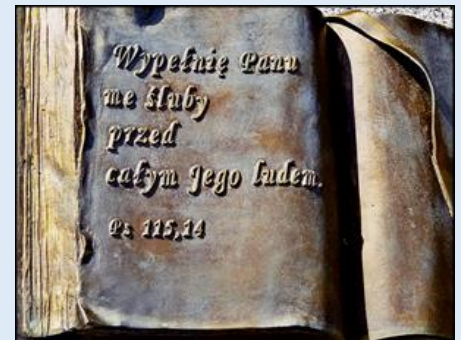 Wypełnię Panu
me śluby
przed
całym Jego ludem.
Ps 115,14